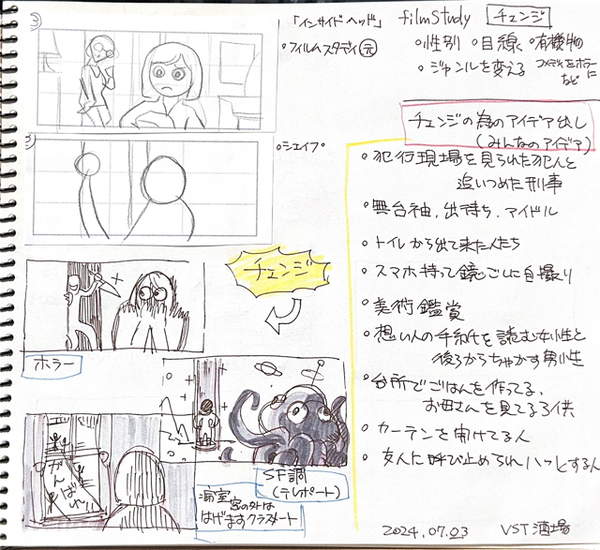 ③
「インサイド ヘッド」
filmStudy
チェンジ
○フィルムスタディ元
○性別 ○目線 ○有機物
○ジャンルを変える
コメディをホラーに
など
チェンジの為のアイデア出し
(みんなのアイデア)
3)
○シェイプ
○犯行現場を見られた犯人と
追いつめた刑事
○舞台袖、出待ち、アイドル
○トイレから出て来た人たち
○スマホ持って鏡ごしに自撮り
○美術鑑賞
○想い人の手紙を読む女性と
後ろからちゃかす男性
○台所でごはんを作ってる、
お母さんを見てる子供
○カーテンを開けてる人
○友人に呼び止められハッとする人
チェンジ
ホラー
SF調
(テレポート)
がんばれ
窓の外は
はげますクラスメート
2024.07.03 VST酒場